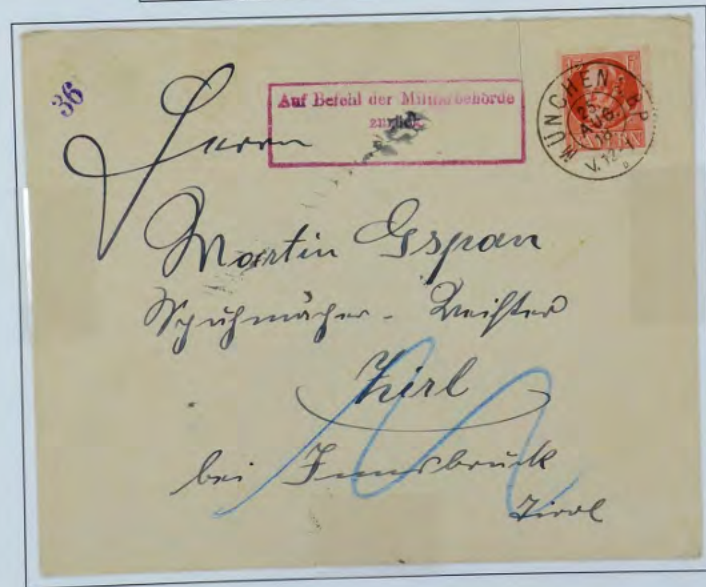 36
Auf Befehl der Militärbehörde
zurück.
15
BAYERN
MÜNCHEN
AUG.
Herrn
Martin Gspan
Schuhmacher - Meister
Zirl
bei Innsbruck
Tirol